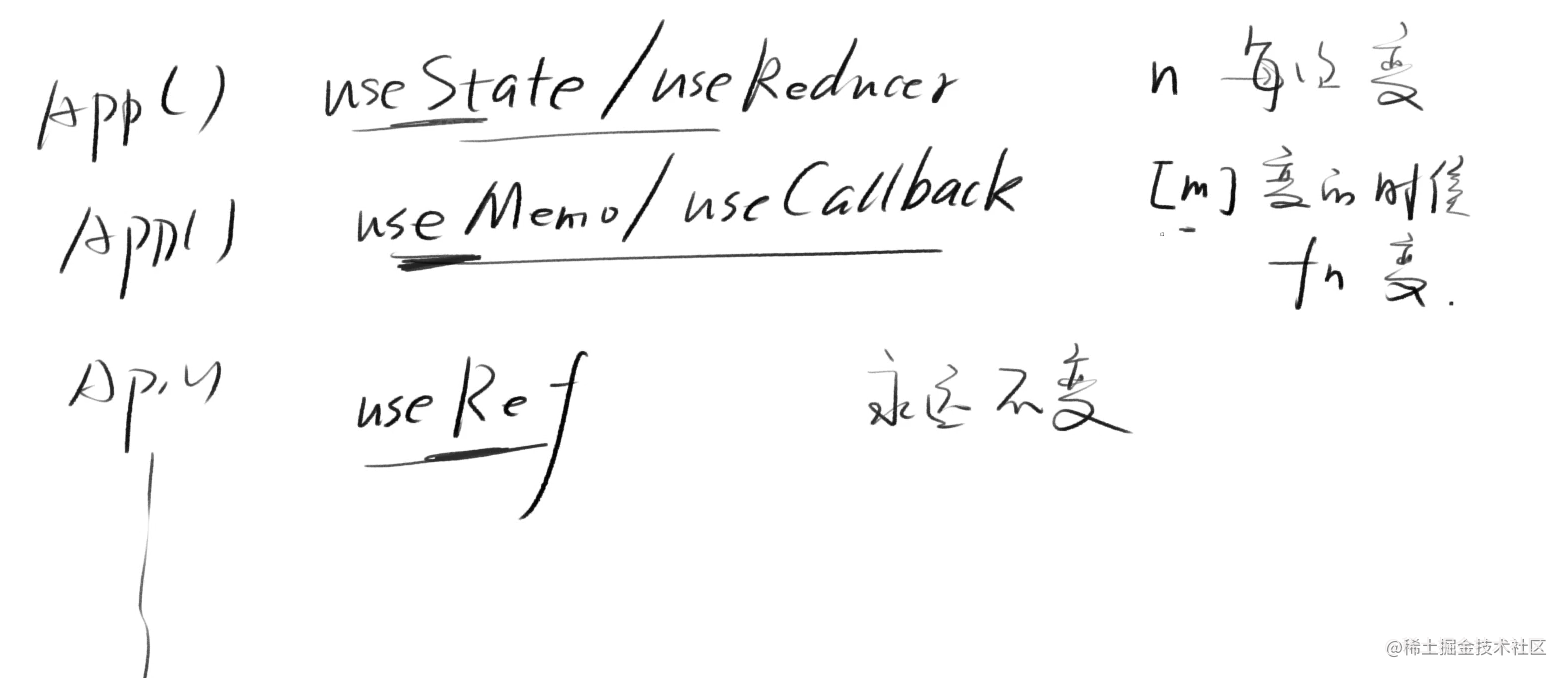 App() useState/useReducer n 每次变
App() useMemo/useCallback [m] 变的时候
fn 变.
App() useRef 永远不变
@稀土掘金技术社区